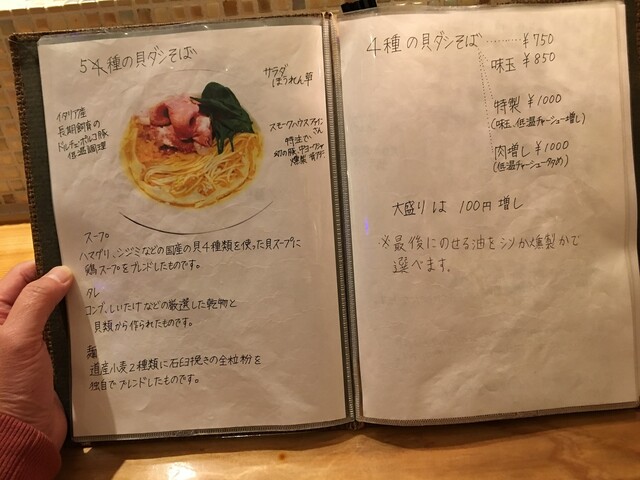 5４種の貝ダシそば
サラダ
ほうれん草
イタリア産
長期飼育の
ドルチェポルコ豚
低温調理
スモークハウスファイン
さん
特注で
幻の豚、中ヨークシャ
燻製
スープ
ハマグリ、シジミなどの国産の貝４種類を使った貝スープに
鶏スープをブレンドしたものです。
タレ
コンブ、しいたけなどの厳選した乾物と
貝類から作られたものです。
麺
道産小麦２種類に石臼挽きの全粒粉を
独自でブレンドしたものです。
４種の貝ダシそば ¥750
味玉 ¥850
特製 ¥1000
(味玉、低温チャーシュー増し)
肉増し ¥1000
(低温チャーシュー多め)
大盛りは 100円増し
※最後にのせる油をシソか燻製かで
選べます。